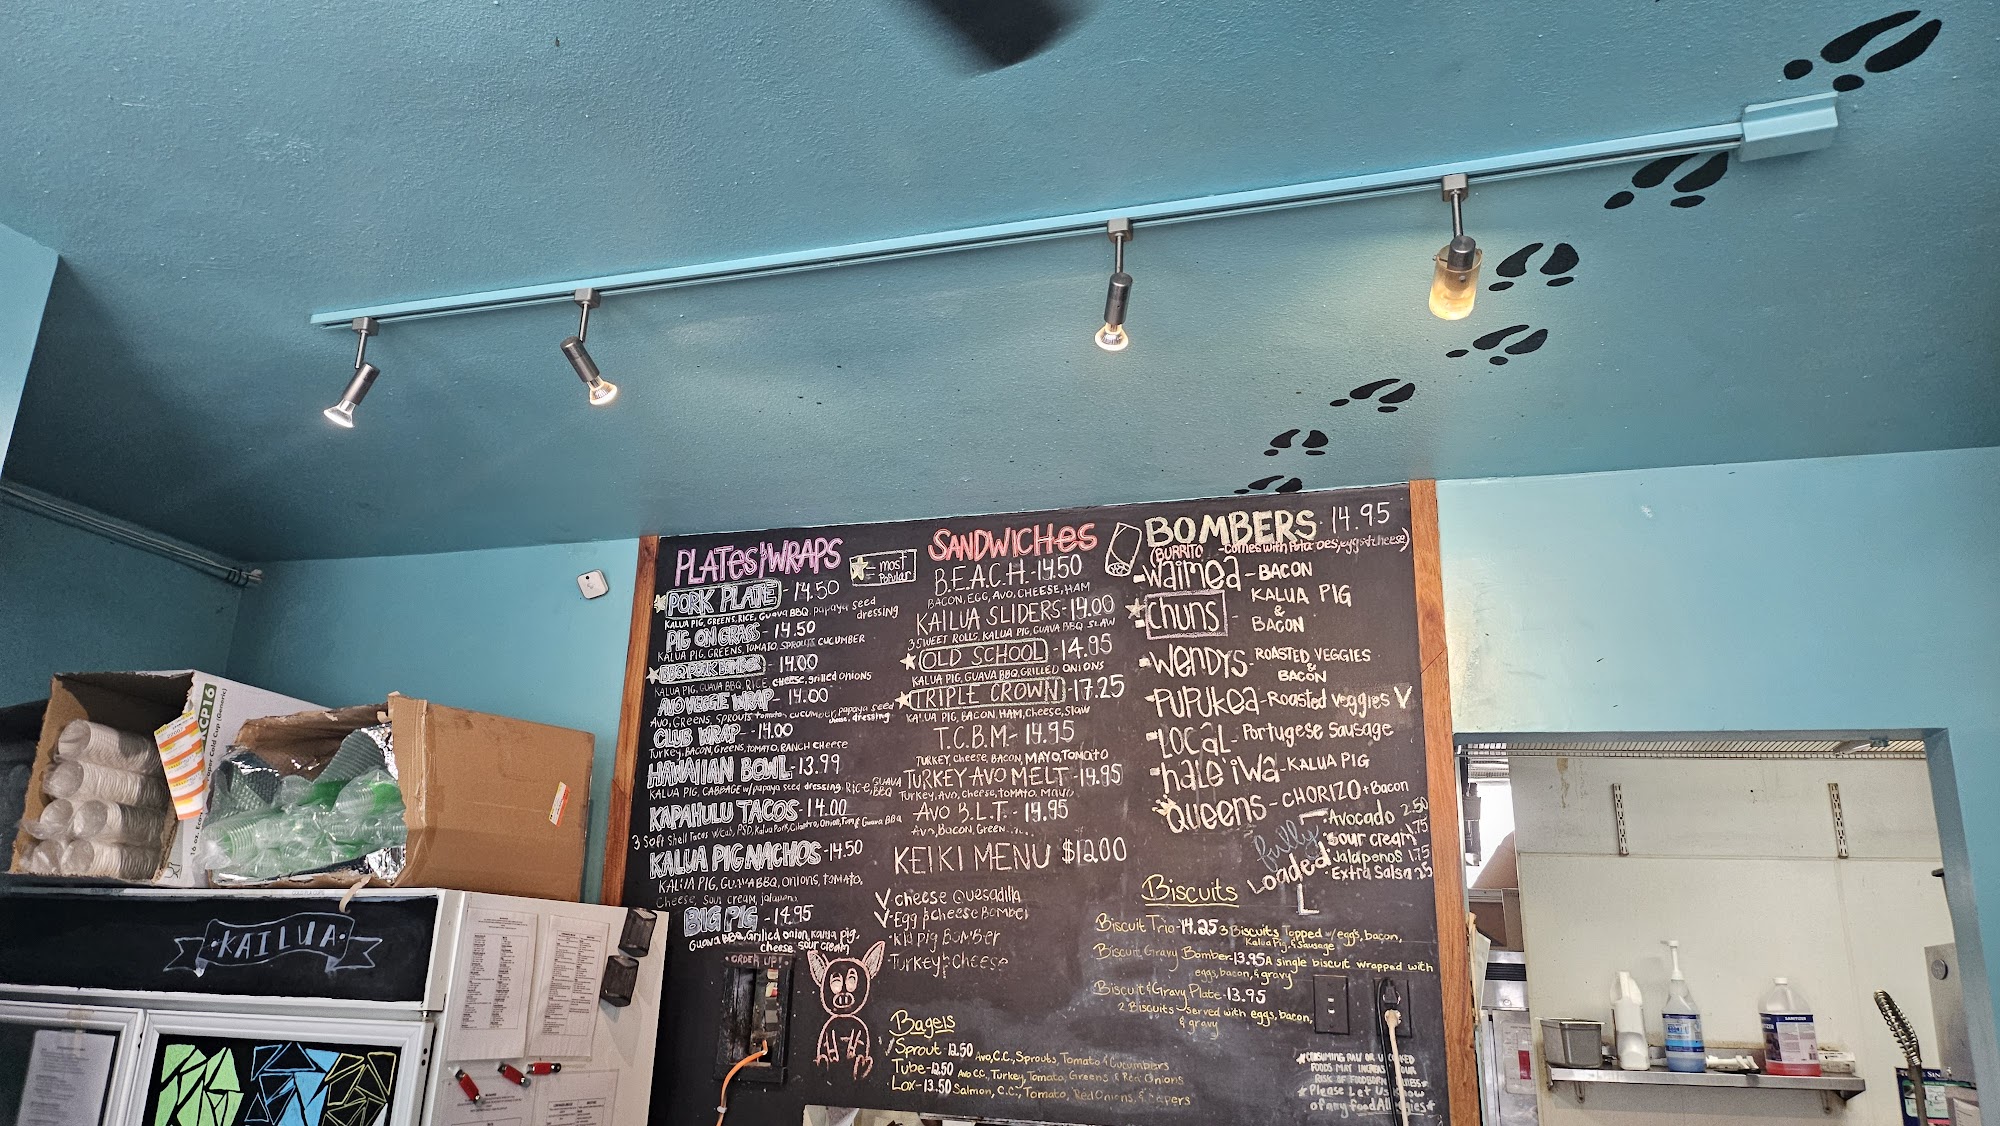 PLATES/WRAPS
= most
Popular
PORK PLATE - 14.50
KALUA PIG, GREENS, RICE, GUAVA BBQ, papaya seed
dressing
PIG ON GRASS - 14.50
KALUA PIG, GREENS, TOMATO, SPROUTS, CUCUMBER
BBQ PORK BOMBER - 14.00
KALUA PIG, GUAVA BBQ, RICE, cheese, grilled onions
AVO VEGGIE WRAP - 14.00
Avo, Greens, Sprouts, tomato, cucumber, papaya seed
dressing
CLUB WRAP - 14.00
Turkey, BACON, Greens, TOMATO, RANCH CHeese
HAWAIIAN BOWL - 13.99
KALUA PIG, CABBAGE w/papaya seed dressing, Rice, GUAVA
BBQ
KAPAHULU TACOS - 14.00
3 Soft Shell Tacos w/Cab, PSD, Kalua Pork, Cilantro, Onion, Tom & Guava BBQ
KALUA PIG NACHOS - 14.50
KALUA PIG, GUAVA BBQ, onions, tomato,
Cheese, sour cream, jalapeno
BIG PIG - 14.95
Guava BBQ, Grilled onion, kalua pig,
cheese, sour cream
ORDER UP!
SANDWICHES
B.E.A.C.H. - 14.50
BACON, EGG, AVO, CHEESE, HAM
KAILUA SLIDERS - 14.00
3 SWEET ROLLS, KALUA PIG, GUAVA BBQ, SLAW
OLD SCHOOL - 14.95
KALUA PIG, GUAVA BBQ, GRILLED ONIONS
TRIPLE CROWN - 17.25
KALUA PIG, BACON, HAM, Cheese, Slaw
T.C.B.M. - 14.95
TURKEY, cheese, BACON, MAYO, TOMATO
TURKEY AVO MELT - 14.95
Turkey, Avo, Cheese, tomato, Mayo
AVO B.L.T. - 14.95
Avo, Bacon, Green
KEIKI MENU $12.00
V cheese Quesadilla
V - Egg & Cheese Bomber
- Kid pig Bomber
- Turkey & Cheese
Bagels
Sprout - 12.50 Avo, C.C., Sprouts, Tomato & Cucumbers
Tube - 12.50 Avo, C.C., Turkey, Tomato, Greens & Red Onions
Lox - 13.50 Salmon, C.C., Tomato, Red Onions, & Capers
BOMBERS - 14.95
(BURRITO - Comes with Potatoes, eggs & cheese)
- Waimea - BACON
- Chuns - KALUA PIG
&
BACON
- Wendys - ROASTED VEGGIES
&
BACON
- Pupukea - Roasted Veggies V
- Local - Portugese Sausage
- hale'iwa - KALUA PIG
Queens - CHORIZO + Bacon
fully
Loaded
- Avocado 2.50
sour cream .75
Jalapenos 1.75
- Extra Salsa .25
Biscuits
Biscuit Trio - 14.25 3 Biscuits Topped w/ eggs, bacon,
Kalua Pig, & Sausage
Biscuit Gravy Bomber - 13.95 A single biscuit wrapped with
eggs, bacon, & gravy
Biscuit & Gravy Plate - 13.95
2 Biscuits served with eggs, bacon,
& gravy
*CONSUMING RAW OR UNCOOKED
FOODS MAY INCREASE YOUR
RISK OF FOODBORN ILLNESS*
*Please Let Us Know
of any food Allergies*
KAILUA
KCP16
16 oz.
SANITIZER